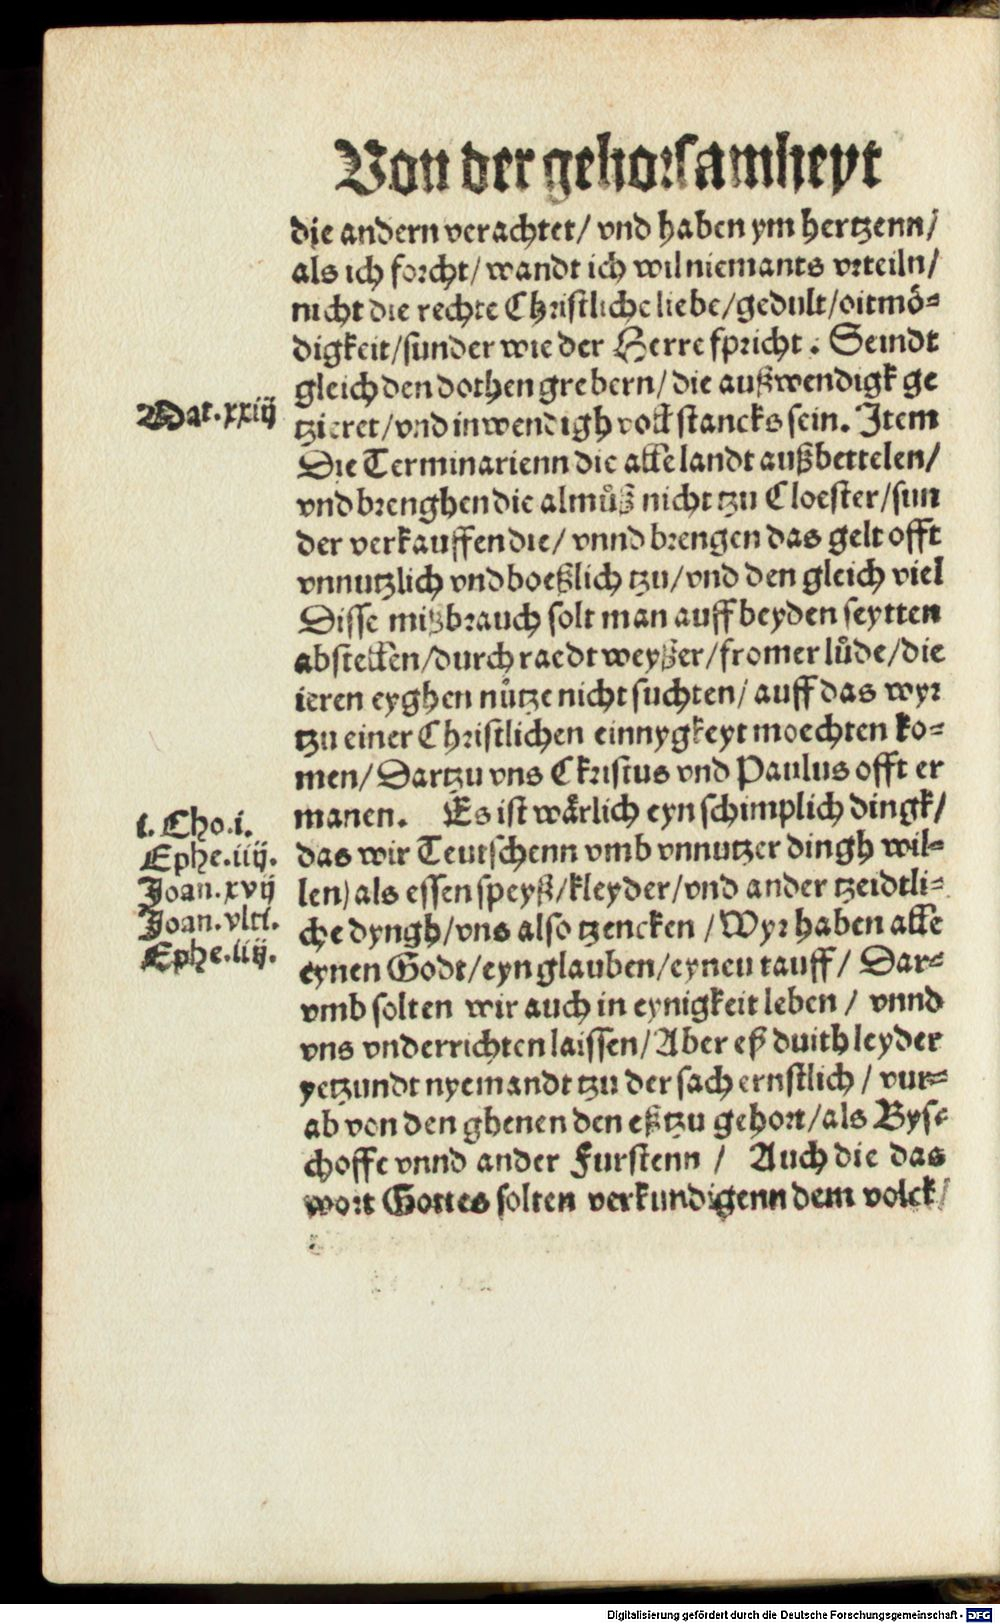 Von der gehorsamheyt
die andern verachtet/ vnd haben ym hertzenn/
als ich forcht/ wandt ich wil niemants vrteiln/
nicht die rechte Christliche liebe/gedult/oitmö-
digkeit/sunder wie der Herre spricht. Seindt
gleich den dothen grebern/ die außwendigk ge
Mat.xxiij
tzieret/vnd inwendigh voll stancks sein. Item
Die Terminarienn die alle landt außbettelen/
vnd brenghen die almůß nicht tzu Cloester/sun
der verkauffen die/ vnnd brengen das gelt offt
vnnutzlich vnd boeßlich tzu/vnd den gleich viel
Disse mißbrauch solt man auff beyden seytten
abstellen/durch raedt weyßer/fromer lůde/die
ieren eyghen nůtze nicht suchten/ auff das wyr
tzu einer Christlichen einnygkeyt moechten ko-
men/ Dartzu vns Ckristus vnd Paulus offt er
manen. Es ist wårlich eyn schimplich dingk/
i. Cho.i.
Ephe.iiij.
Joan.xvij
Joan.vlti.
Ephe.iiij.
das wir Teutschenn vmb vnnutzer dingh wil-
len) als essen speyß/kleyder/vnd ander tzeidtli-
che dyngh/vns also tzencken /Wyr haben alle
eynen Godt/eyn glauben/eyneu tauff/ Dar-
vmb solten wir auch in eynigkeit leben / vnnd
vns vnderrichten laissen/Aber eß duith leyder
yetzundt nyemandt tzu der sach ernstlich / vur-
ab von den ghenen den eß tzu gehort/als Bys-
choffe vnnd ander Furstenn / Auch die das
wort Gottes solten verkundigenn dem volck/
Digitalisierung gefördert durch die Deutsche Forschungsgemeinschaft - DFG